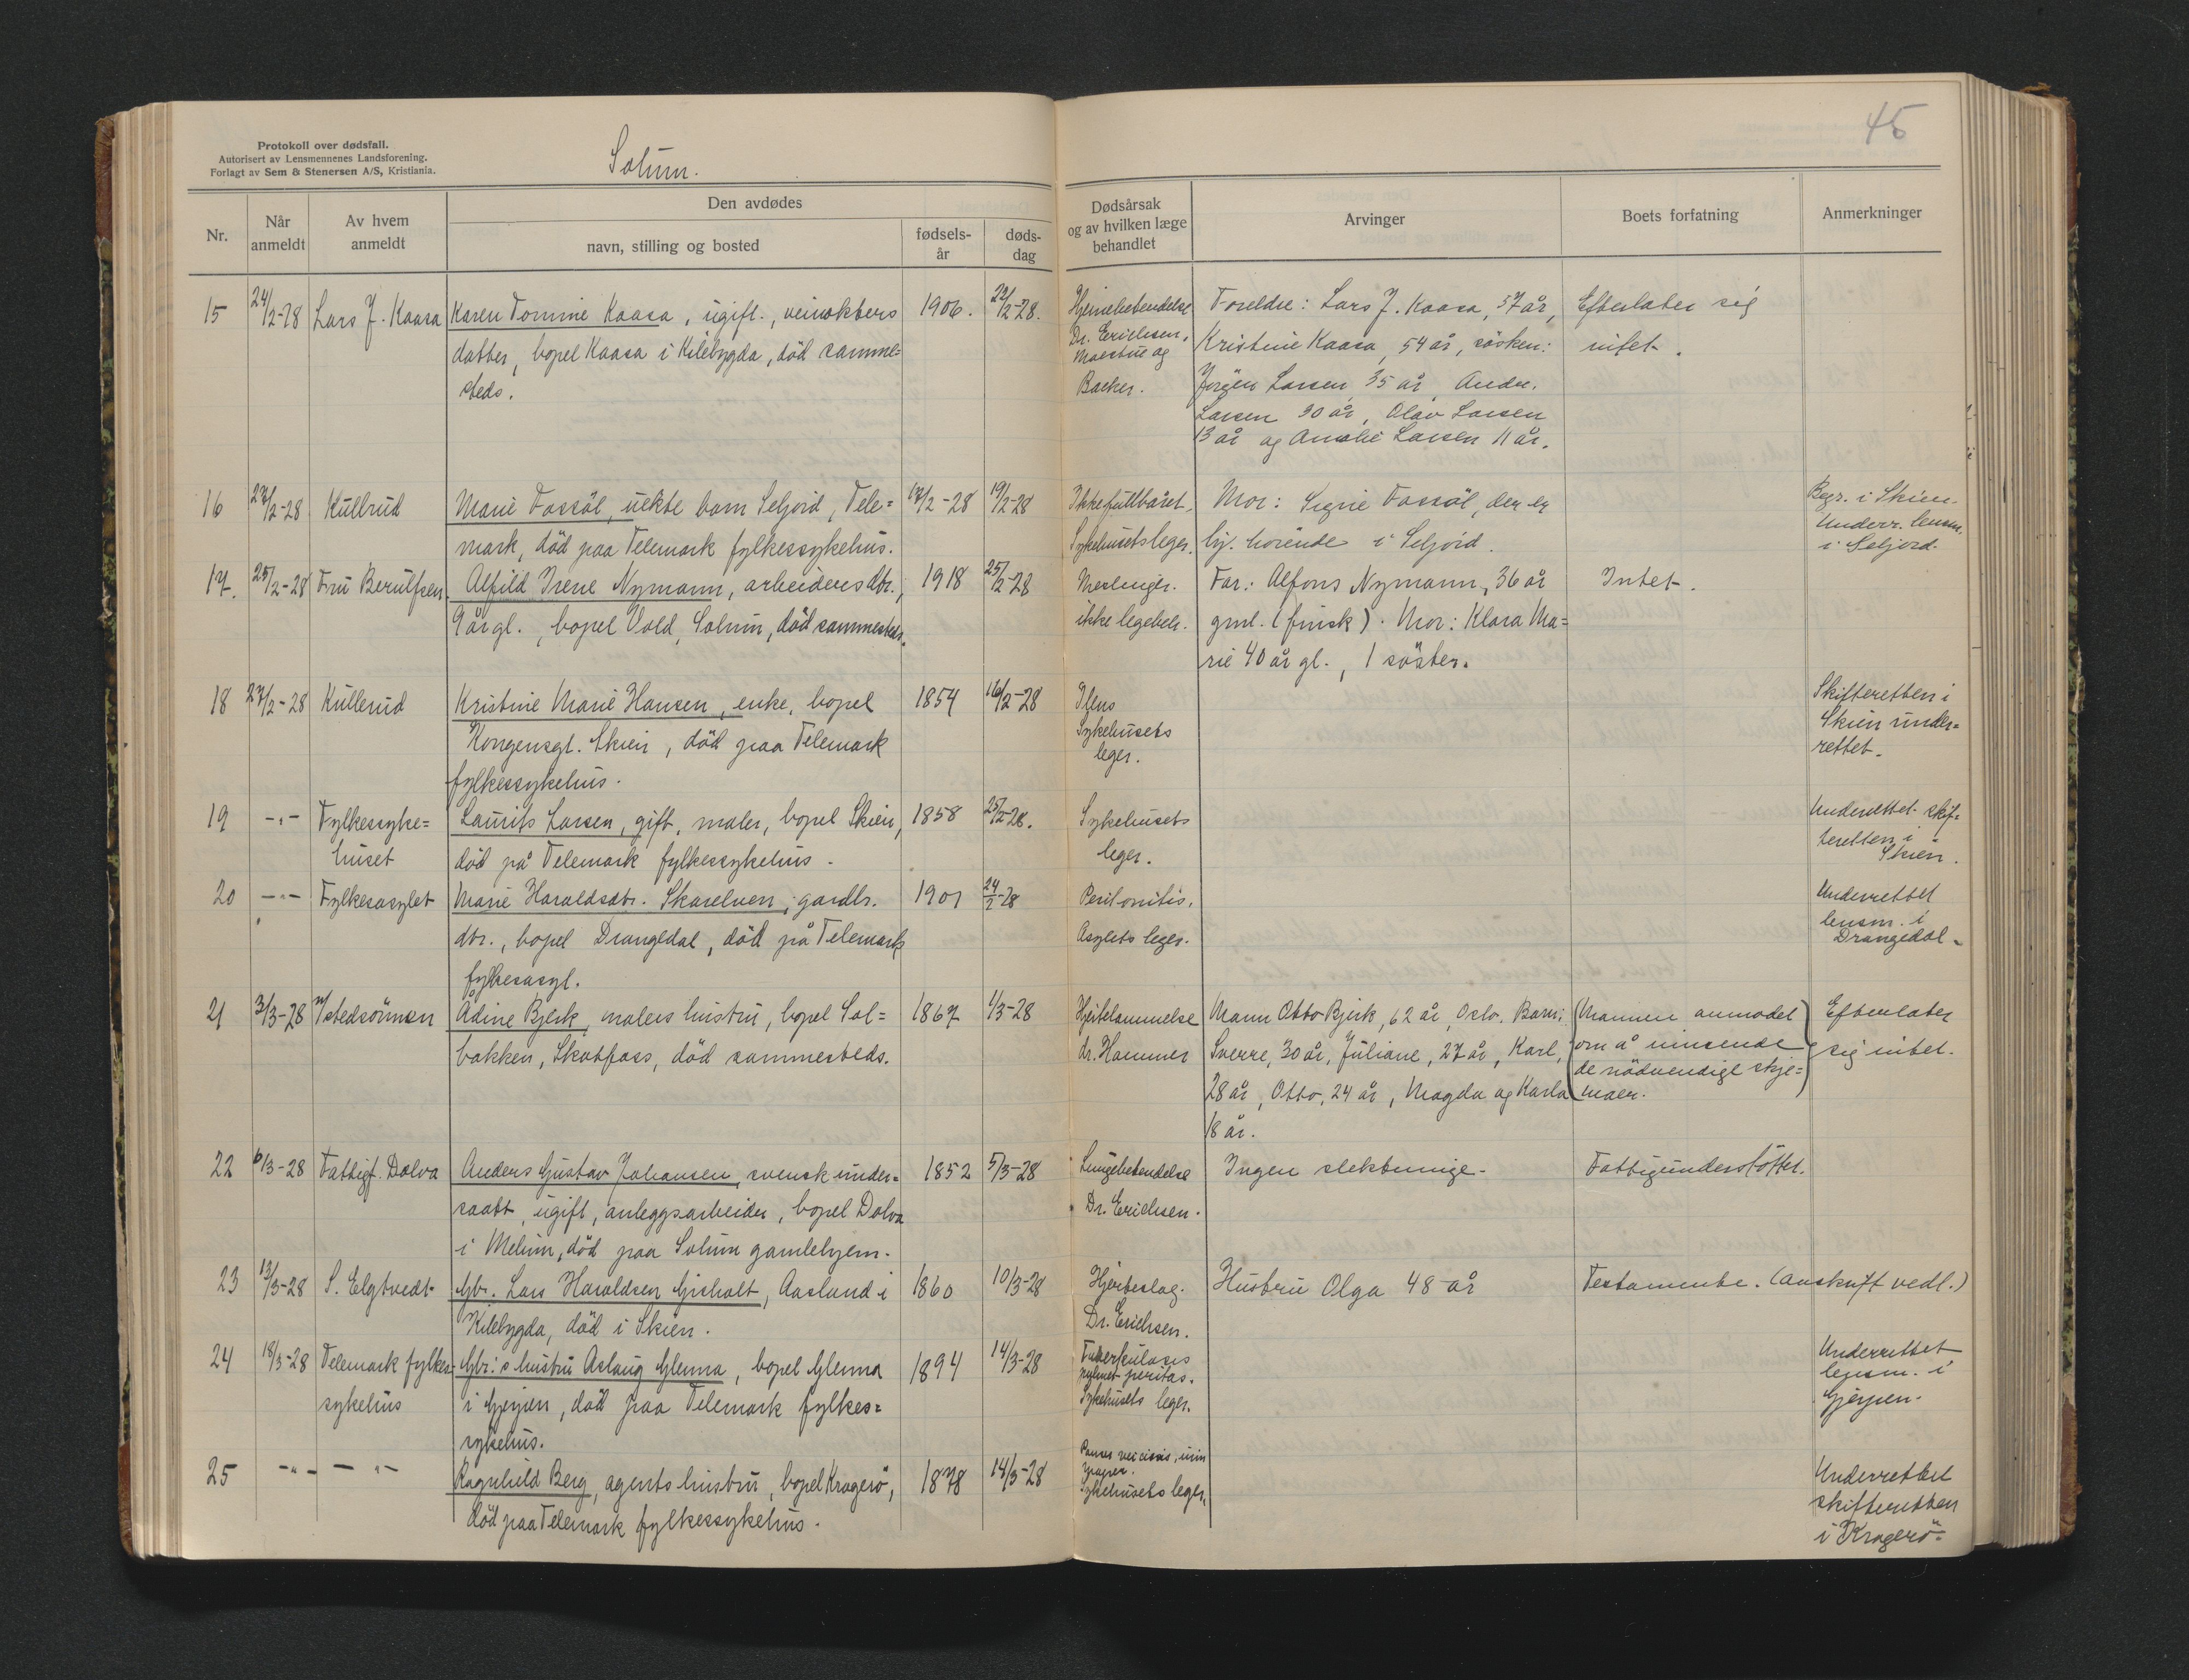 45
Protokoll over dødsfall.
Autorisert av Lensmennenes Landsforening.
Forlagt av Sem & Stenersen A/S, Kristiania.
Solum.
Nr.
Når anmeldt
Av hvem anmeldt
Den avdødes
navn, stilling og bosted
fødsels-år
døds-dag
Dødsårsak og av hvilken læge behandlet
Arvinger
Boets forfatning
Anmerkninger
15 24/2-28 Lars J. Kaasa Karen Tomine Kaasa, ugift., veivokters 1906. 22/2-28. Hjernebetendelse Foreldre: Lars J. Kaasa, 57 år, Efterlater sig
datter, bopel Kaasa i Kilebygda, död samme= Dr. Erichsen, Moestue og Kristine Kaasa, 54 år, sösken: intet.
steds. Backer. Jörgen Larsen, 35 år, Andr.
Larsen 30 år, Olav Larsen
13 år og Amalie Larsen 11 år.
16 27/2-28 Kullerud Marie Fossöl, uekte barn Seljord, Tele= 17/2-28 19/2-28 Ikke fullbåret. Mor: Signe Fossöl, der er Begr. i Skien.
mark, död paa Telemark fylkessykehus. Sykehusets leger. hj. hörende i Seljord. Underr. lensm. i Seljord.
17. 25/2-28 Fru Berulfsen Alfild Irene Nymann, arbeiders dtr., 1918 25/2-28 Meslinger. Far: Alfons Nymann, 36 år Intet.
9 år gl., bopel Vold, Solum, död sammesteds. ikke legebeh. gml. (finsk). Mor: Klara Ma=
rie 40 år gl., 1 söster.
18 27/2-28 Kullerud Kristine Marie Hansen, enke, bopel 1854 16/2-28 Ileus Skifteretten i
Kongensgt. Skien, död paa Telemark Sykehusets Skien under=
fylkessykehus. leger. rettet.
19 -"- Fylkessyke= Laurits Larsen, gift, maler, bopel Skien, 1858 25/2-28. Sykehusets Underrettet skif=
huset död på Telemark fylkessykehus. leger. teretten i Skien.
20 -"- Fylkesasylet Marie Haraldsdtr. Skarelven, gardbr. 1901 24/2-28 Peritonitis. Underrettet
dtr., bopel Drangedal, död på Telemark Asylets leger. lensm. i Drangedal.
fylkesasyl.
21 3/3-28 v/stedsönnen Adine Bjerk, malers hustru, bopel Sol= 1867 1/3-28 Hjertelammelse Mann Otto Bjerk, 62 år, Oslo. Barn: (Mannen anmodet Efterlater
bakken, Skotfoss, död sammesteds. dr. Hammer Sverre, 30 år, Juliane, 27 år, Karl, om å innsende sig intet.
28 år, Otto, 24 år, Magda og Karla de nödvendige skje=
18 år. maer.)
22 6/3-28 Fattigf. Dolva Anders Gustav Johansen, svensk under= 1852 5/3-28 Lungebetendelse Ingen slektninge. Fattigunderstöttet.
saatt, ugift, anleggsarbeider, bopel Dolva Dr. Erichsen.
i Melum, död paa Solum gamlehjem.
23 13/3-28 S. Elgtvedt Gbr. Lars Haraldsen Gisholt, Aasland i 1860 10/3-28 Hjerteslag. Hustru Olga 48 år Testamente. (avskrift vedl.)
Kilebygda, död i Skien. Dr. Erichsen.
24 18/3-28 Telemark fylkes= Gbr.s hustru Aslaug Glenna, bopel Glenna 1894 14/3-28 Tuberkulosis Underrettet
sykehus i Gjerpen, död paa Telemark fylkes= Sykehusets leger. lensm. i
sykehus. Gjerpen.
25 -"- -"- Ragnhild Berg, agents hustru, bopel Kragerö, 1878 14/3-28 Sykehusets leger. Underrettet
död paa Telemark fylkessykehus. skifteretten
i Kragerö.